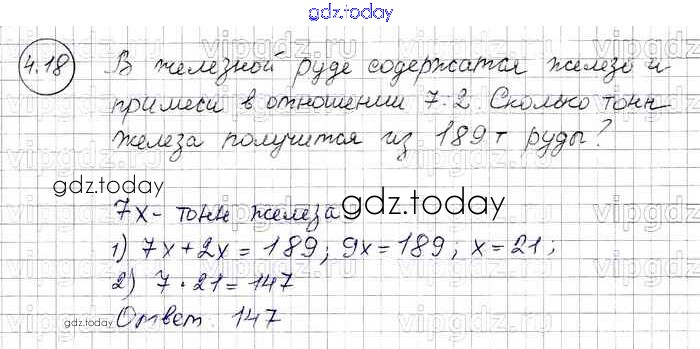 gdz.today
4.18 В железной руде содержатся железо и
примеси в отношении 7:2. Сколько тонн
железа получится из 189 т руды?
gdz.today
7x - тонн железа gdz.today
1) 7x + 2x = 189; 9x = 189; x = 21;
2) 7 · 21 = 147
gdz.today Ответ 147